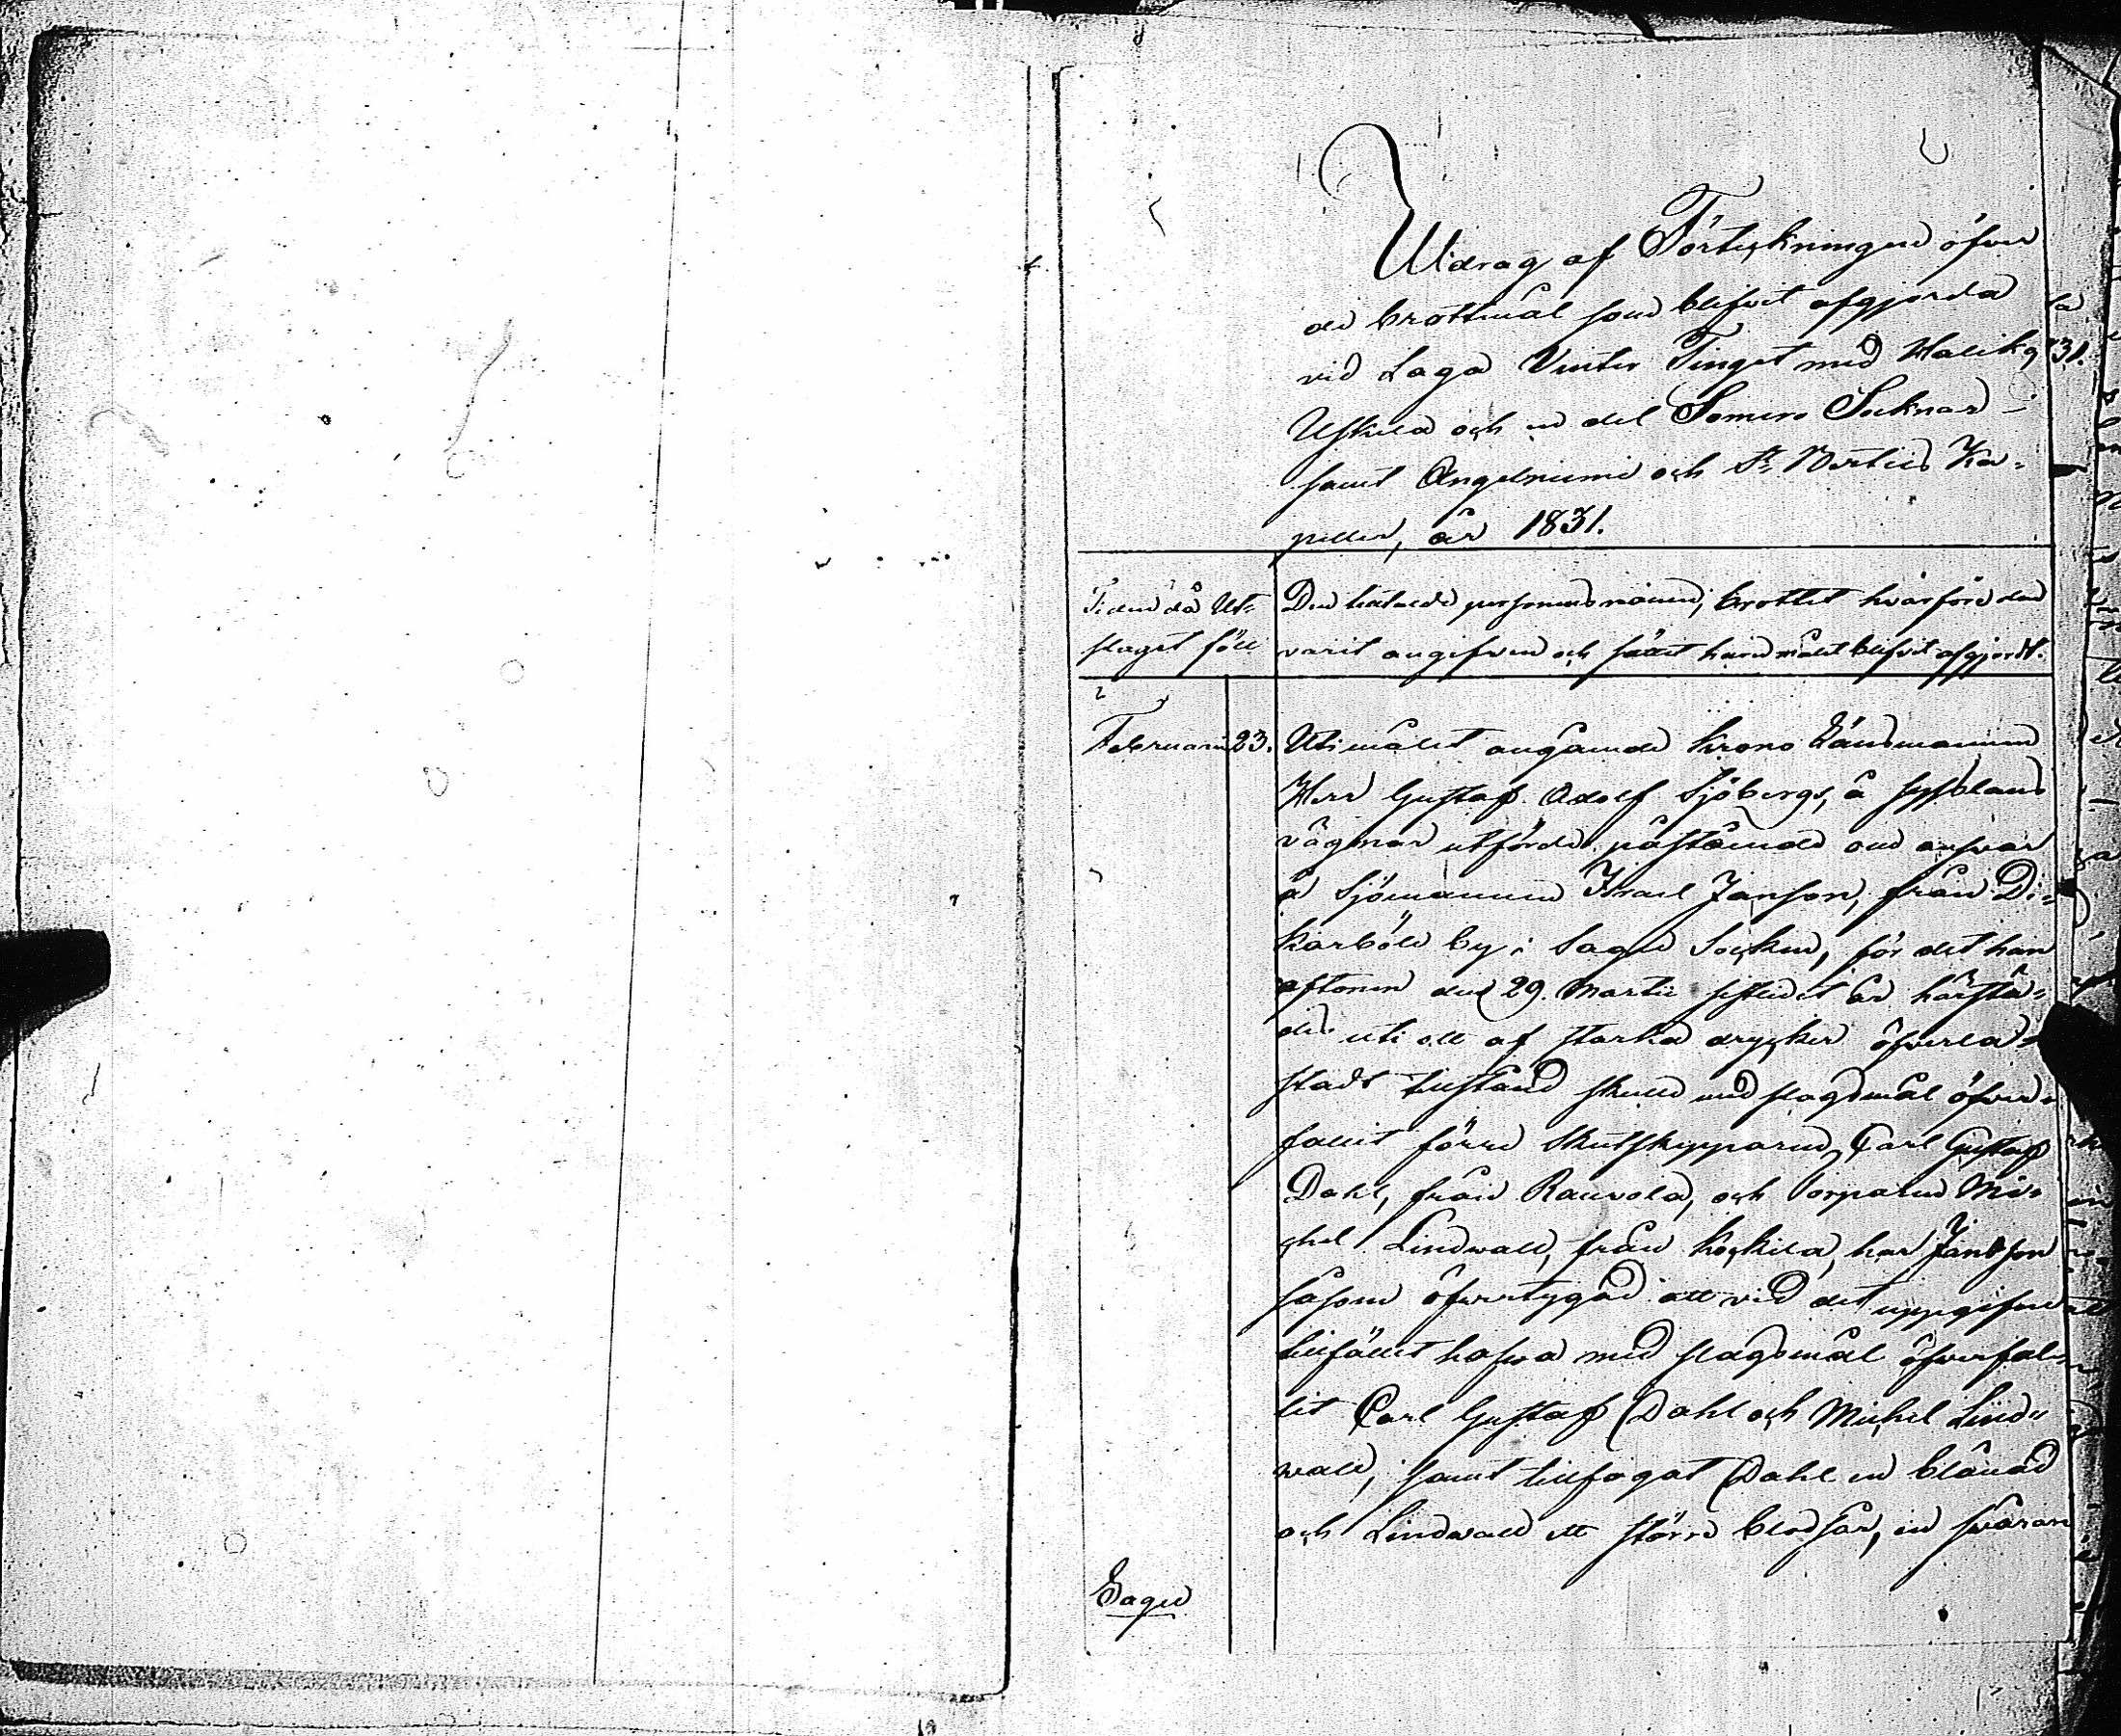 Utdrag af Förteckningen öfver
de brottmål som blifvit afgjorda
vid Laga Vinter Tinget med Haliko,
Uskela och en del Somero Socknar
samt Angelniemi och S:t Bertils Ka=
peller, år 1831.
Tiden då Ut=
slaget föll
Den tilltalade personens namn, brottet hvarföre den
varit angifven och sättet huru målet blifvit afgjordt.
Februarii 23.
Uti målet angående Krono Länsmannen
Herr Gustaf Adolf Sjöbergs, å Sysslans
vägnar utförde påstående om answar
å Sjömannen Israel Janson, från Di=
karböle by i Sagu Socken, för det han
aftonen den 29. Martii sistledit år härstä=
des uti ett af starka drycker öfverla=
stadt tillstånd skulle med slagsmål öfver=
fallit förre Skutskepparen Carl Gustaf
Dahl, från Rauvola, och Torparen Mi=
chel Lindwall, från Kockila, har Jansson
såsom öfvertygad att vid det uppgifne
tillfället hafva med slagsmål öfverfal=
lit Carl Gustaf Dahl och Michel Lind=
wall, samt tillfogat Dahl en blånad
och Lindwall ett större blodsår, en svåran
Sagu